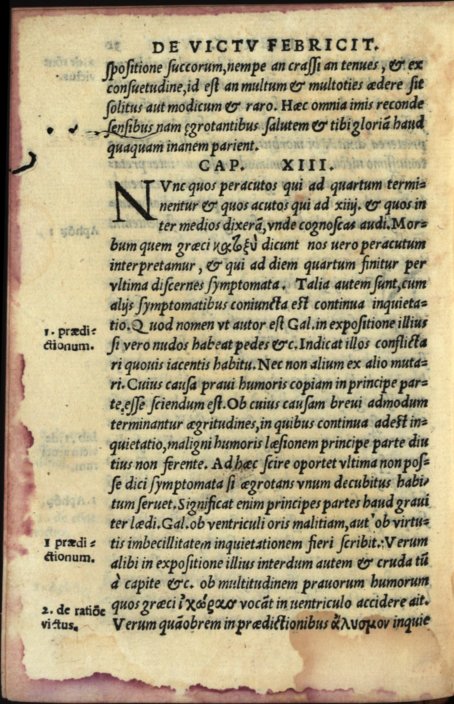 DE VICTV FEBRICIT.
spositione succorum, nempe an crassi an tenues, & ex
consuetudine, id est an multum & multoties ædere sit
solitus aut modicum & raro. Hæc omnia imis reconde
sensibus nam ęgrotantibus salutem & tibi gloriā haud
quaquam inanem parient.
CAP. XIII.
NVnc quos peracutos qui ad quartum termi=
nentur & quos acutos qui ad xiiij. & quos in
ter medios dixerā, vnde cognoscas audi. Mor=
bum quem græci dicunt nos uero peracutum
interpretamur, & qui ad diem quartum finitur per
vltima discernes symptomata. Talia autem sunt, cum
alijs symptomatibus coniuncta est continua inquieta=
1. prædi=
ctionum.
tio. Quod nomen vt autor est Gal. in expositione illius
si vero nudos habeat pedes &c. Indicat illos conflicta
ri quouis iacentis habitu. Nec non alium ex alio muta=
ri. Cuius causa praui humoris copiam in principe par=
te, esse sciendum est. Ob cuius causam breui admodum
terminantur ægritudines, in quibus continua adest in=
quietatio, maligni humoris læsionem principe parte diu
tius non ferente. Ad hæc scire oportet vltima non pos=
se dici symptomata si ægrotans vnum decubitus habi
tum seruet. Significat enim principes partes haud graui
ter lædi. Gal. ob ventriculi oris malitiam, aut ob virtu=
1 prædi=
ctionum.
tis imbecillitatem inquietationem fieri scribit. Verum
alibi in expositione illius interdum autem & cruda tū
à capite &c. ob multitudinem prauorum humorum
2. de ratiōe
victus.
quos græci ἰχώρας vocāt in uentriculo accidere ait.
Verum quāobrem in prædictionibus ἄλυσμον inquie